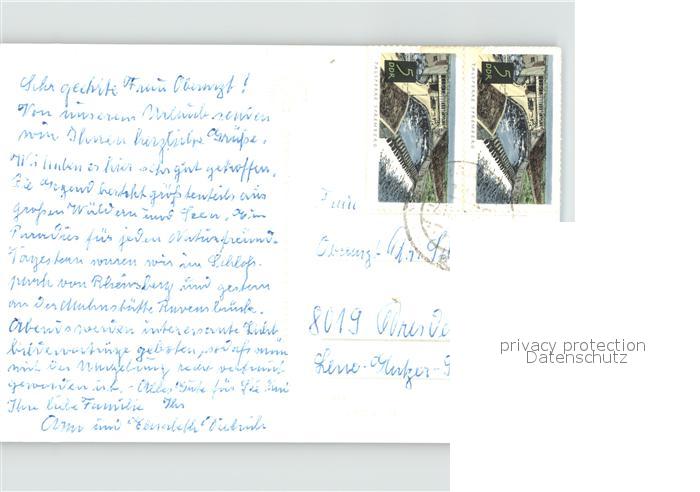 Sehr geehrte Frau Oberarzt!
Von unserem Urlaub senden
wir Ihnen herzliche Grüße.
Wir haben es hier sehr gut getroffen.
Die Gegend besteht größtenteils aus
großen Wäldern und Seen. Ein
Paradies für jeden Naturfreund.
Vorgestern waren wir im Schloß-
park von Rheinsberg und gestern
an der Mahnstätte Ravensbrück.
Abends werden interessante Licht-
bildervorträge geboten, sodaß man
mit der Umgebung sehr vertraut
geworden ist. - Alles Gute für Sie und
Ihre liebe Familie Ihr
und Elisabeth
5 DDR
5 DDR
Frau
Oberarzt
8019 Dresde
privacy protection
Datenschutz